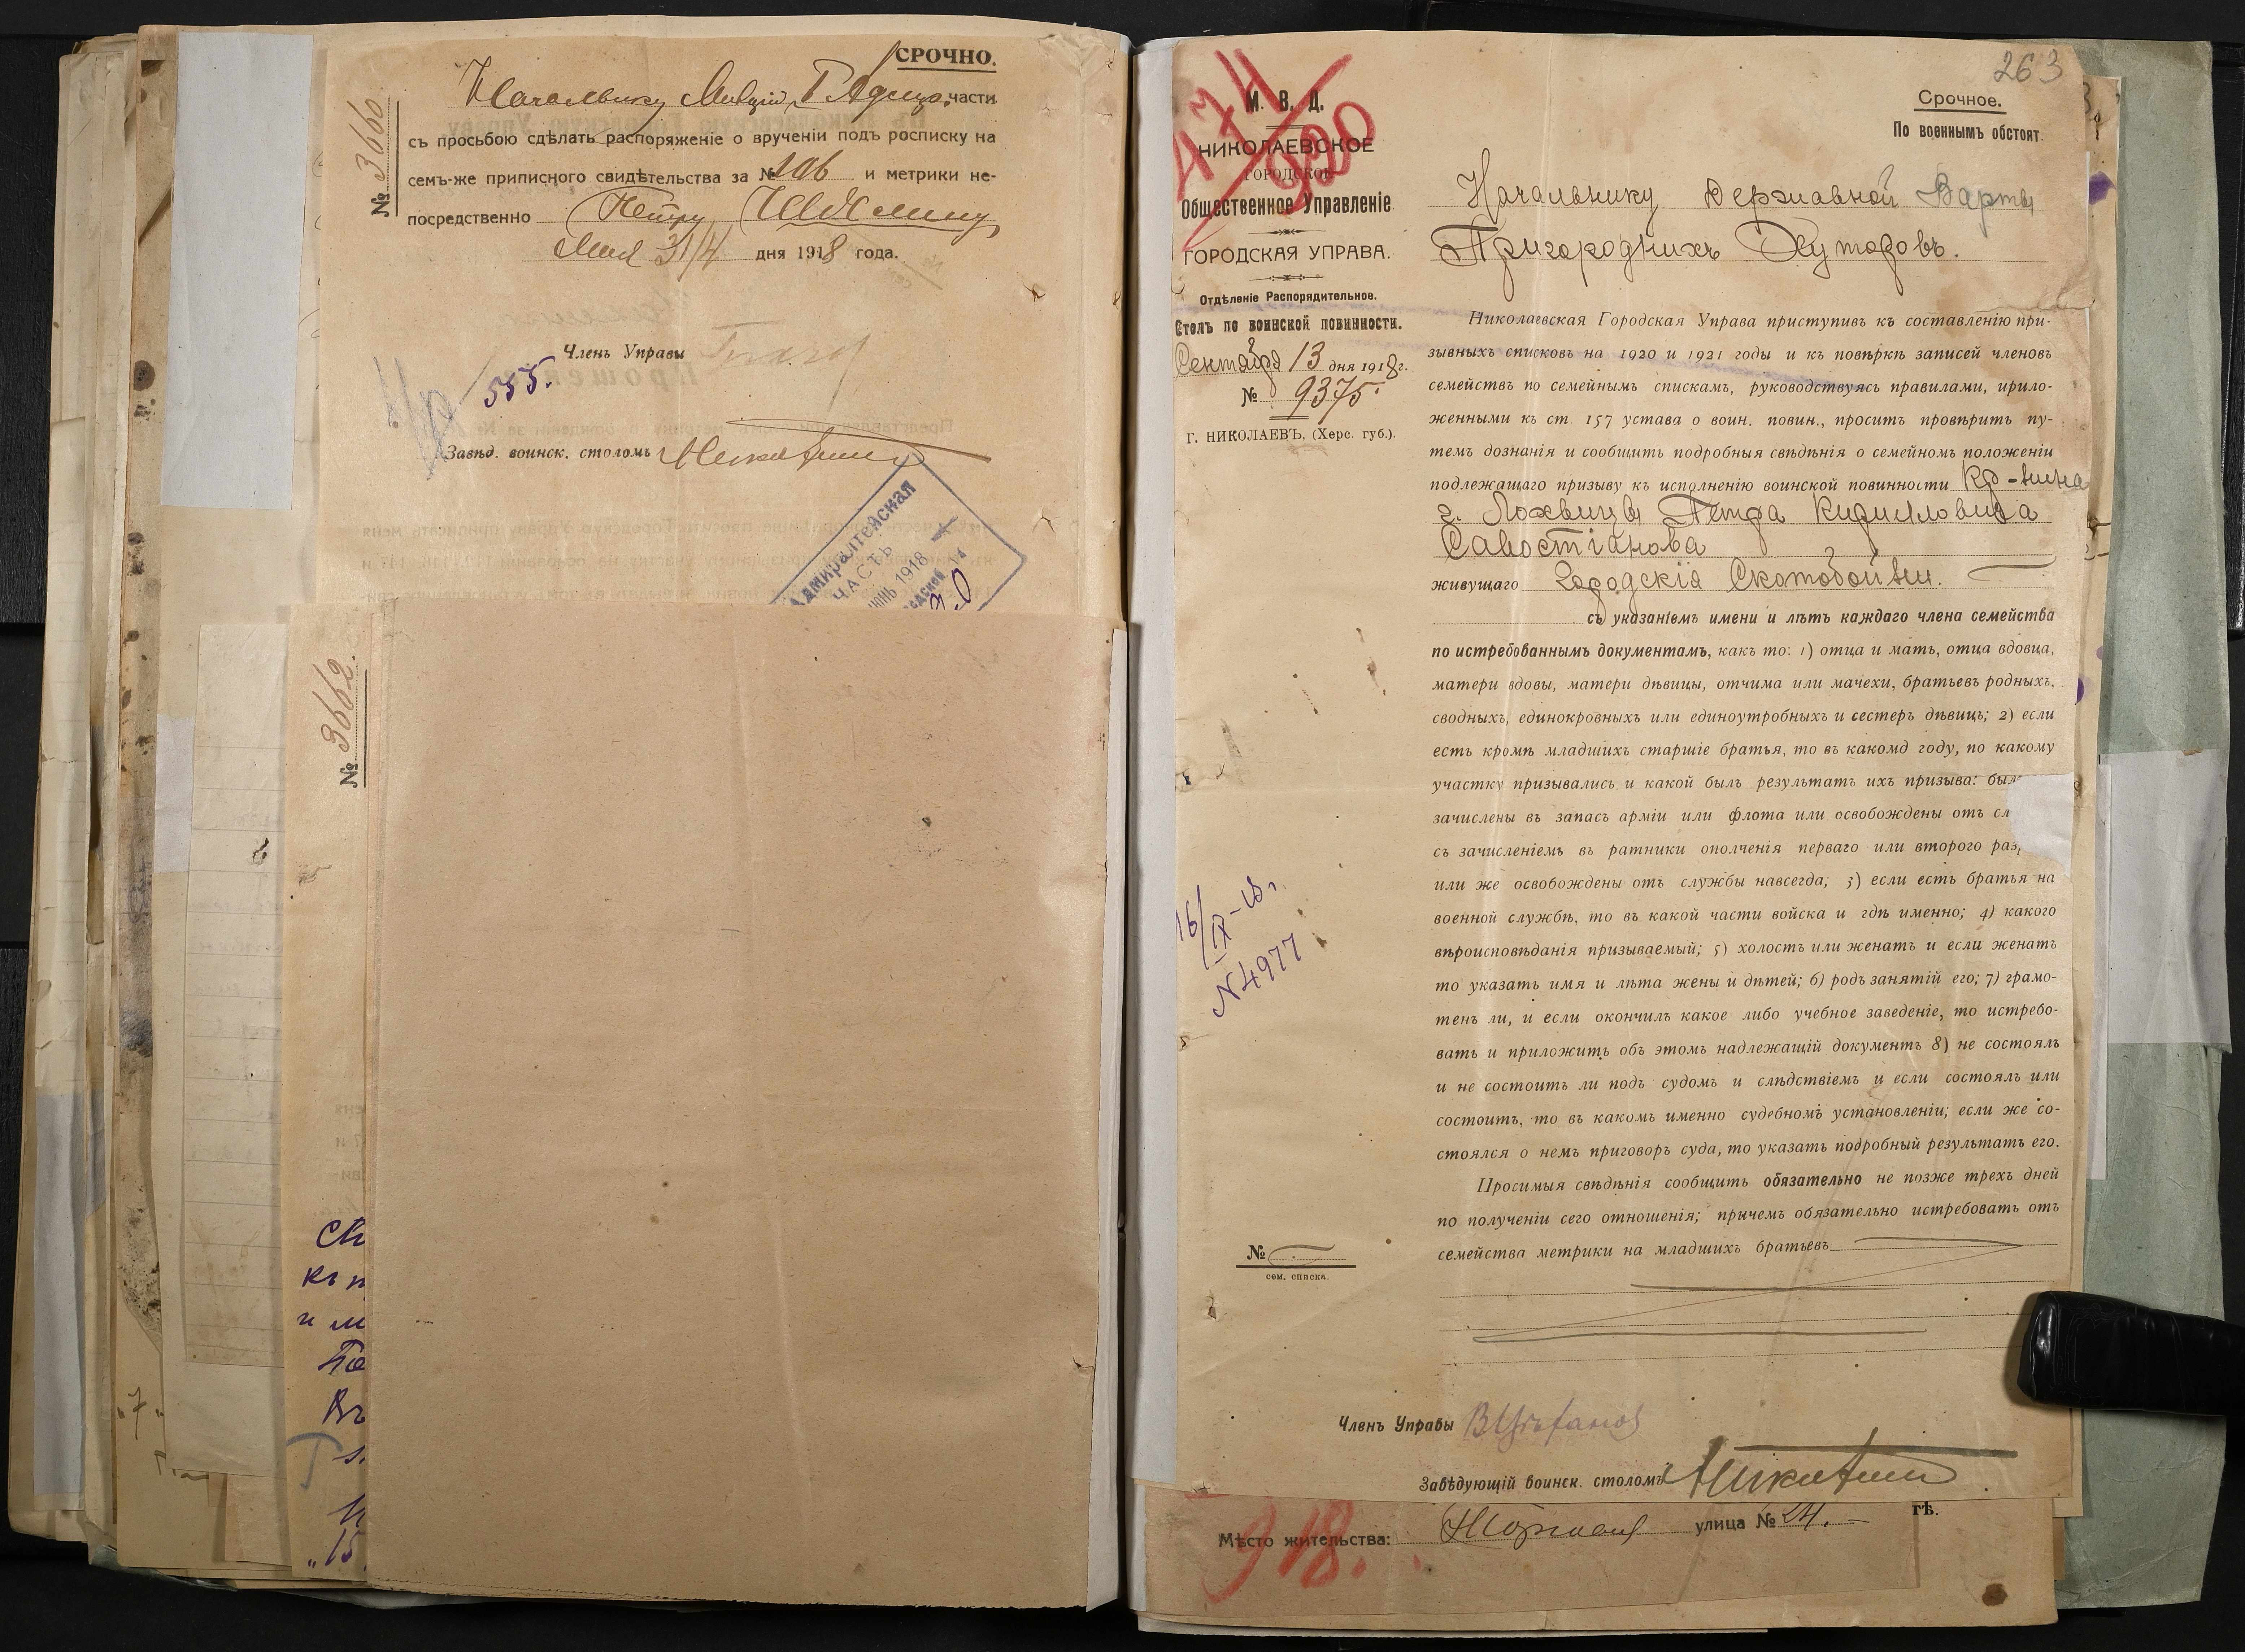 СРОЧНО.
№ 3660
Начальнику части
съ просьбою сдѣлать распоряженіе о врученіи подъ росписку на
семъ-же приписного свидѣтельства за № 106 и метрики не-
посредственно Петру
Мая 31/4 дня 1918 года.
Членъ Управы
555.
Завѣд. воинск. столомъ
Адмиралтейская
ЧАСТЬ
1918
№ 3662.
263
474/920
М. В. Д.
НИКОЛАЕВСКОЕ
ГОРОДСКОЕ
Общественное Управленіе
ГОРОДСКАЯ УПРАВА.
Отдѣленіе Распорядительное.
Столъ по воинской повинности.
Сентября 13 дня 1918 г.
№ 9375.
Г. НИКОЛАЕВЪ, (Херс. губ.).
Срочное.
По военнымъ обстоят.
Начальнику Державной Варты
Пригороднихъ Хуторовъ.
Николаевская Городская Управа приступивъ къ составленію при-
зывныхъ списковъ на 1920 и 1921 годы и къ повѣркѣ записей членовъ
семействъ по семейнымъ спискамъ, руководствуясь правилами, прило-
женными къ ст 157 устава о воин. повин., проситъ провѣрить пу-
темъ дознанія и сообщить подробныя свѣдѣнія о семейномъ положеніи
подлежащаго призыву къ исполненію воинской повинности кр-нина
г. Лохвицы Петра Кирилловича
Савостіанова
живущаго Городскія Скотобойни.
съ указаніемъ имени и лѣтъ каждаго члена семейства
по истребованнымъ документамъ, какъ то: 1) отца и мать, отца вдовца,
матери вдовы, матери дѣвицы, отчима или мачехи, братьевъ родныхъ,
сводныхъ, единокровныхъ или единоутробныхъ и сестеръ дѣвицъ; 2) если
есть кромѣ младшихъ старшіе братья, то въ какомд году, по какому
участку призывались и какой былъ результатъ ихъ призыва: был
зачислены въ запасъ арміи или флота или освобождены отъ сл
съ зачисленіемъ въ ратники ополченія перваго или второго раз
или же освобождены отъ службы навсегда; 3) если есть братья на
военной службѣ, то въ какой части войска и гдѣ именно; 4) какого
вѣроисповѣданія призываемый; 5) холостъ или женатъ и если женатъ
то указать имя и лѣта жены и дѣтей; 6) родъ занятій его; 7) грамо-
тенъ ли, и если окончилъ какое либо учебное заведеніе, то истребо-
вать и приложить объ этомъ надлежащій документъ 8) не состоялъ
и не состоитъ ли подъ судомъ и слѣдствіемъ и если состоялъ или
состоитъ, то въ какомъ именно судебномъ установленіи; если же со-
стоялся о немъ приговоръ суда, то указать подробный результатъ его.
Просимыя свѣдѣнія сообщить обязательно не позже трехъ дней
по полученіи сего отношенія; причемъ обязательно истребовать отъ
семейства метрики на младшихъ братьевъ
16/IX-18 г.
N 4977
№
сем. списка.
Членъ Управы
Завѣдующій воинск. столомъ
гѣ.
Мѣсто жительства: улица № 24.
918.